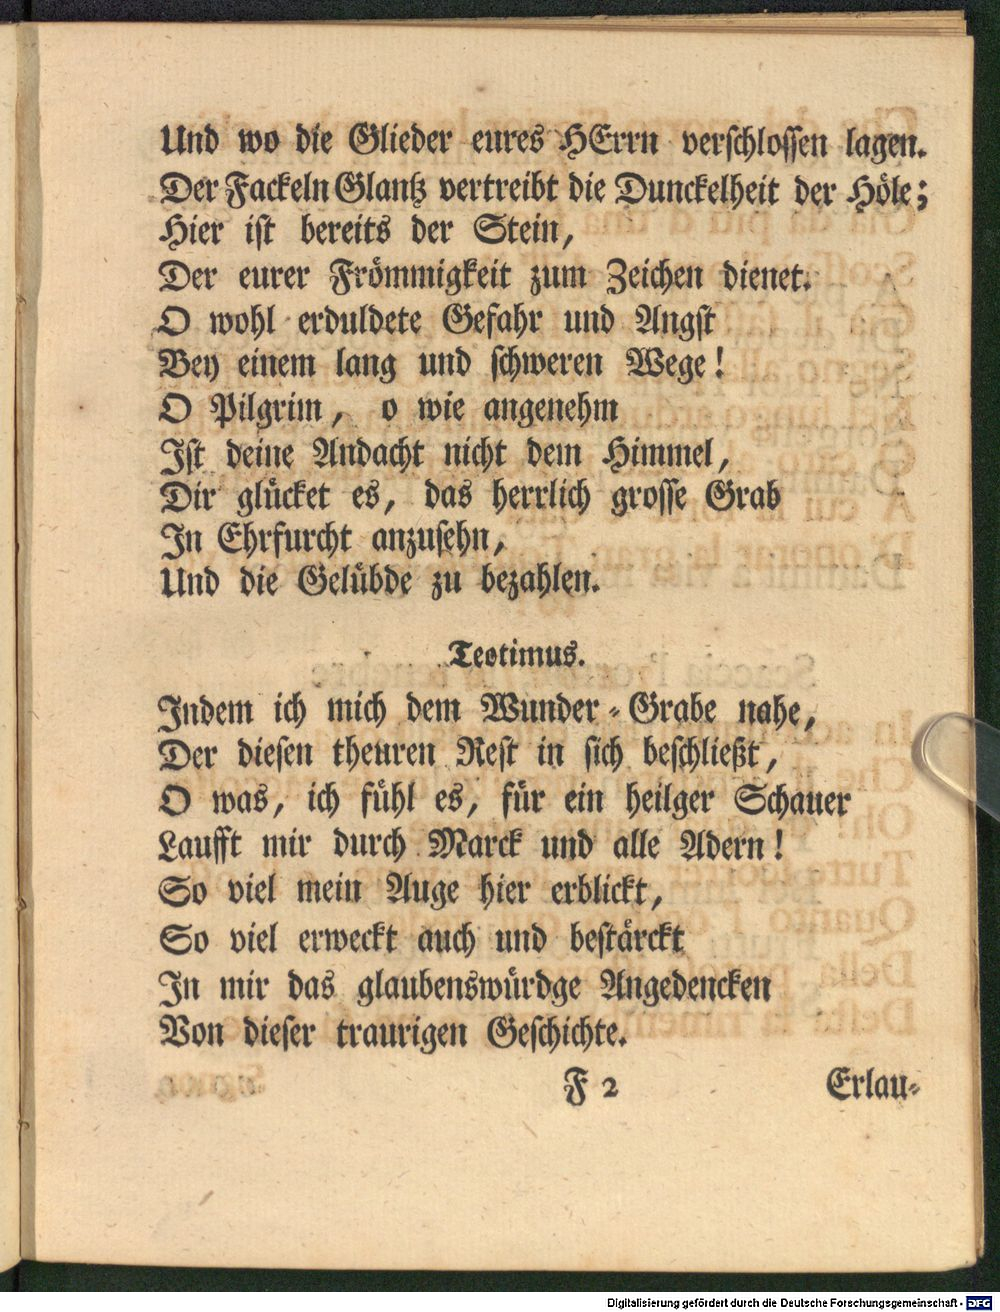 Und wo die Glieder eures HErrn verschlossen lagen.
Der Fackeln Glantz vertreibt die Dunckelheit der Höle;
Hier ist bereits der Stein,
Der eurer Frömmigkeit zum Zeichen dienet.
O wohl erduldete Gefahr und Angst
Bey einem lang und schweren Wege!
O Pilgrim, o wie angenehm
Ist deine Andacht nicht dem Himmel,
Dir glücket es, das herrlich grosse Grab
In Ehrfurcht anzusehn,
Und die Gelübde zu bezahlen.
Teotimus.
Indem ich mich dem Wunder-Grabe nahe,
Der diesen theuren Rest in sich beschließt,
O was, ich fühl es, für ein heilger Schauer
Laufft mir durch Marck und alle Adern!
So viel mein Auge hier erblickt,
So viel erweckt auch und bestärckt
In mir das glaubenswürdge Angedencken
Von dieser traurigen Geschichte.
F 2 Erlau-
Digitalisierung gefördert durch die Deutsche Forschungsgemeinschaft - DFG